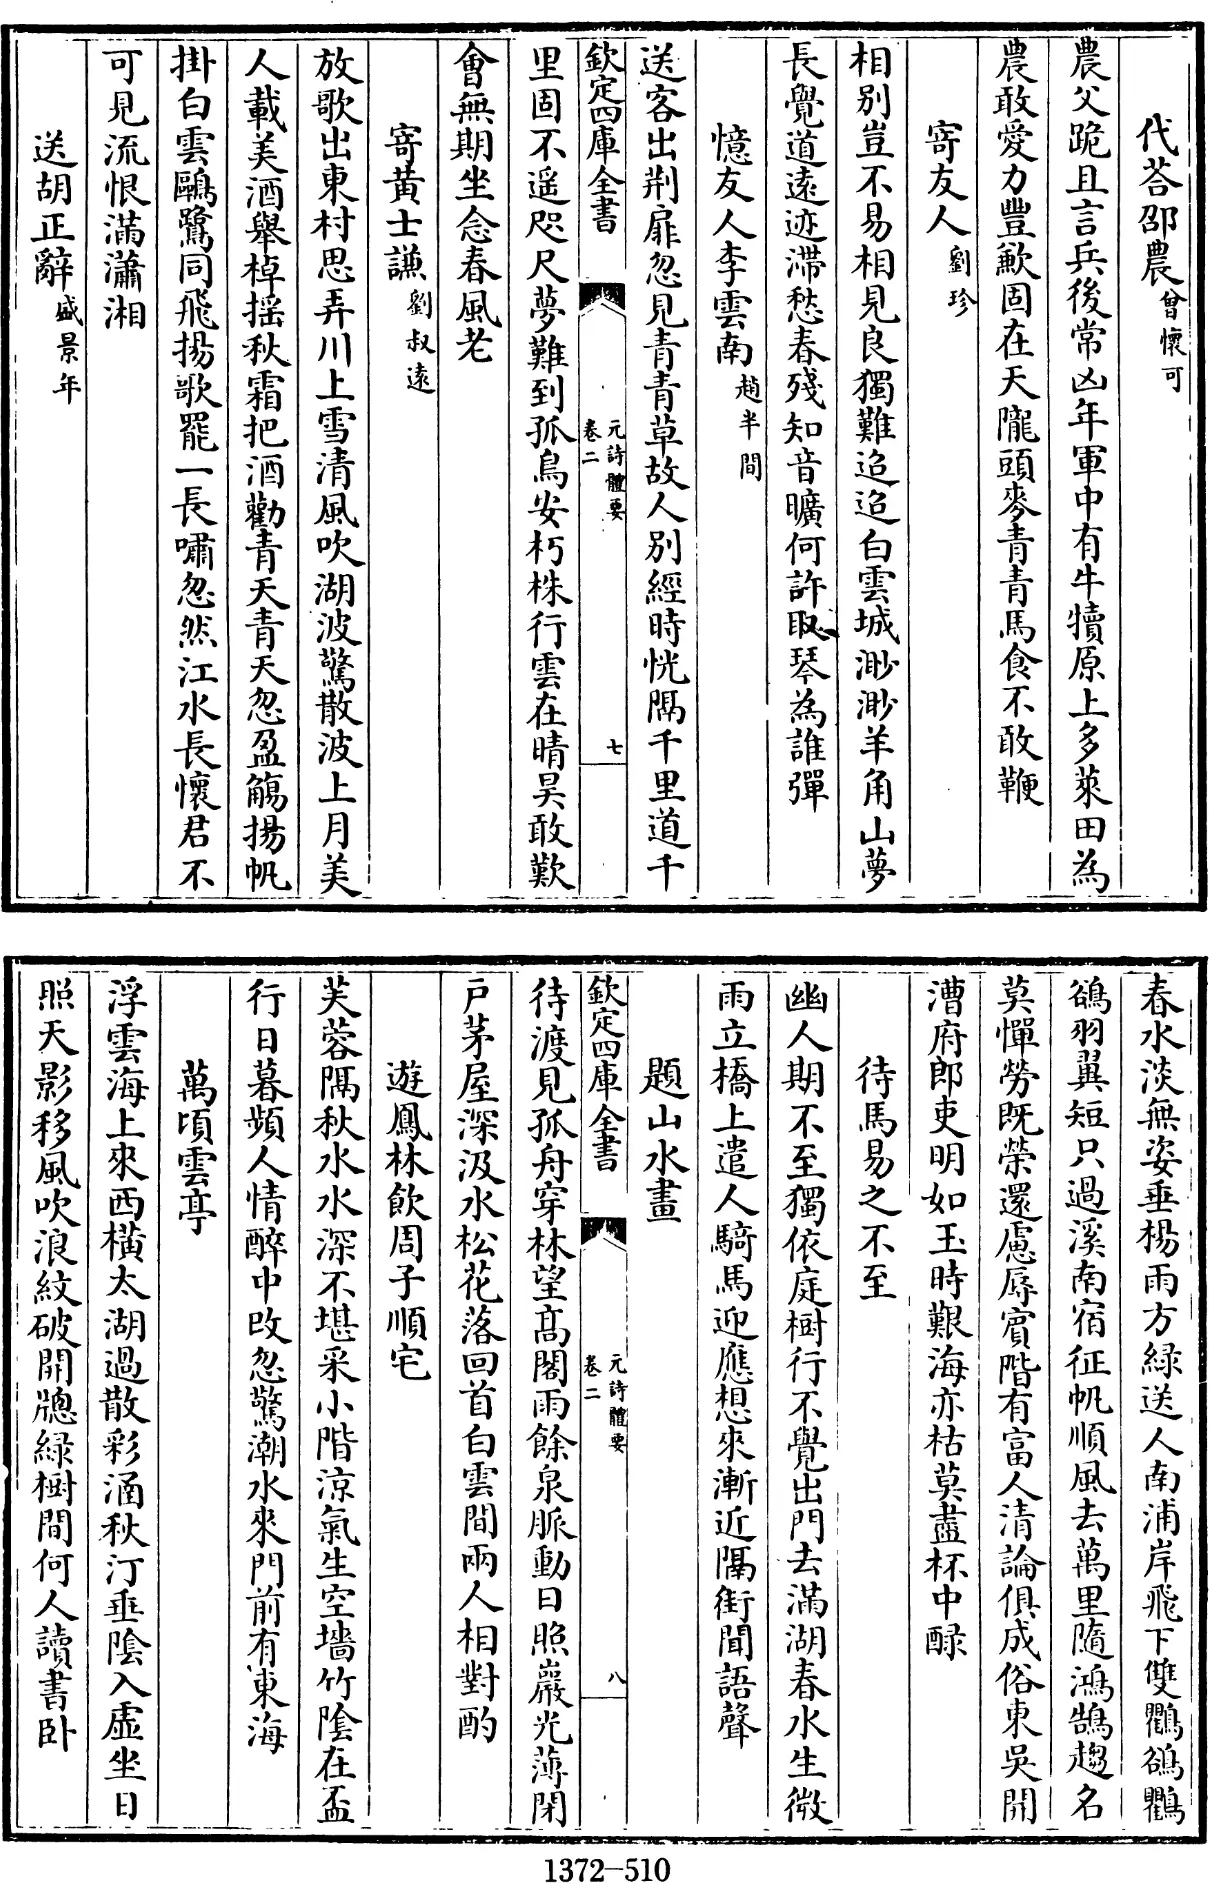 代荅邵農曾懷可
農父跪且言兵後常凶年軍中有牛犢原上多萊田為
農敢愛力豐歉固在天隴頭麥青青馬食不敢鞭
寄友人劉珍
相別豈不易相見良獨難迢迢白雲城渺渺羊角山夢
長覺道遠迹滯愁春殘知音曠何許取琴為誰彈
憶友人李雲南趙半間
送客出荆扉忽見青青草故人別經時恍隔千里道千
欽定四庫全書
元詩體要
卷二
七
里固不遥咫尺夢難到孤鳥安朽株行雲在晴昊敢歎
會無期坐念春風老
寄黃士謙劉叔遠
放歌出東村思弄川上雪清風吹湖波驚散波上月美
人載美酒舉棹揺秋霜把酒勸青天青天忽盈觴揚帆
掛白雲鷗鷺同飛揚歌罷一長嘯忽然江水長懷君不
可見流恨滿瀟湘
送胡正辭盛景年
春水淡無姿垂楊雨方緑送人南浦岸飛下雙鸜鵒鸜
鵒羽翼短只過溪南宿征帆順風去萬里隨鴻鵠趨名
莫憚勞既榮還慮辱賓階有富人清論俱成俗東吳開
漕府郎吏明如玉時艱海亦枯莫盡杯中醁
待馬易之不至
幽人期不至獨依庭樹行不覺出門去滿湖春水生微
雨立橋上遣人騎馬迎應想來漸近隔街聞語聲
題山水畫
欽定四庫全書
元詩體要
卷二
八
待渡見孤舟穿林望髙閣雨餘泉脈動日照巖光薄閉
戸茅屋深汲水松花落回首白雲間兩人相對酌
遊鳳林飲周子順宅
芙蓉隔秋水水深不堪采小階凉氣生空墻竹陰在盃
行日暮頻人情醉中改忽驚潮水來門前有東海
萬頃雲亭
浮雲海上來西横太湖過散彩涵秋汀垂陰入虛坐日
照天影移風吹浪紋破開牕緑樹間何人讀書卧
1372-510